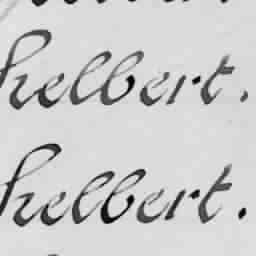 helbert.
helbert.